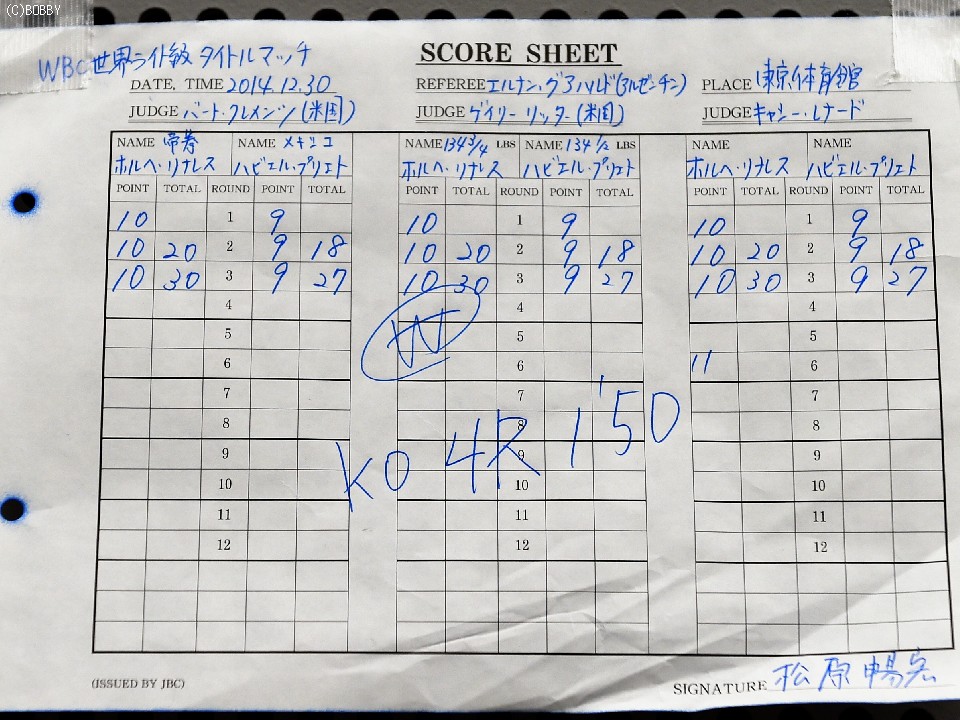 (C)BOBBY
WBC世界ライト級 タイトルマッチ
SCORE SHEET
DATE, TIME 2014.12.30
REFEREE エルナン・グアハルド(アルゼンチン)
PLACE 東京体育館
JUDGE バート・クレメンツ(米国)
JUDGE ゲイリー・リッター(米国)
JUDGE キャシー・レナード
NAME 帝拳 NAME メキシコ NAME 134 3/4 LBS NAME 134 1/2 LBS NAME NAME
ホルヘ・リナレス ハビエル・プリエト ホルヘ・リナレス ハビエル・プリエト ホルヘ・リナレス ハビエル・プリエト
POINT TOTAL ROUND POINT TOTAL POINT TOTAL ROUND POINT TOTAL POINT TOTAL ROUND POINT TOTAL
10 1 9 10 1 9 10 1 9
10 20 2 9 18 10 20 2 9 18 10 20 2 9 18
10 30 3 9 27 10 30 3 9 27 10 30 3 9 27
4 4 4
W
5 5 5
6 6 11 6
7 7 7
8 8 8
KO 4R 1'50
9 9 9
10 10 10
11 11 11
12 12 12
(ISSUED BY JBC)
SIGNATURE 松原暢宏